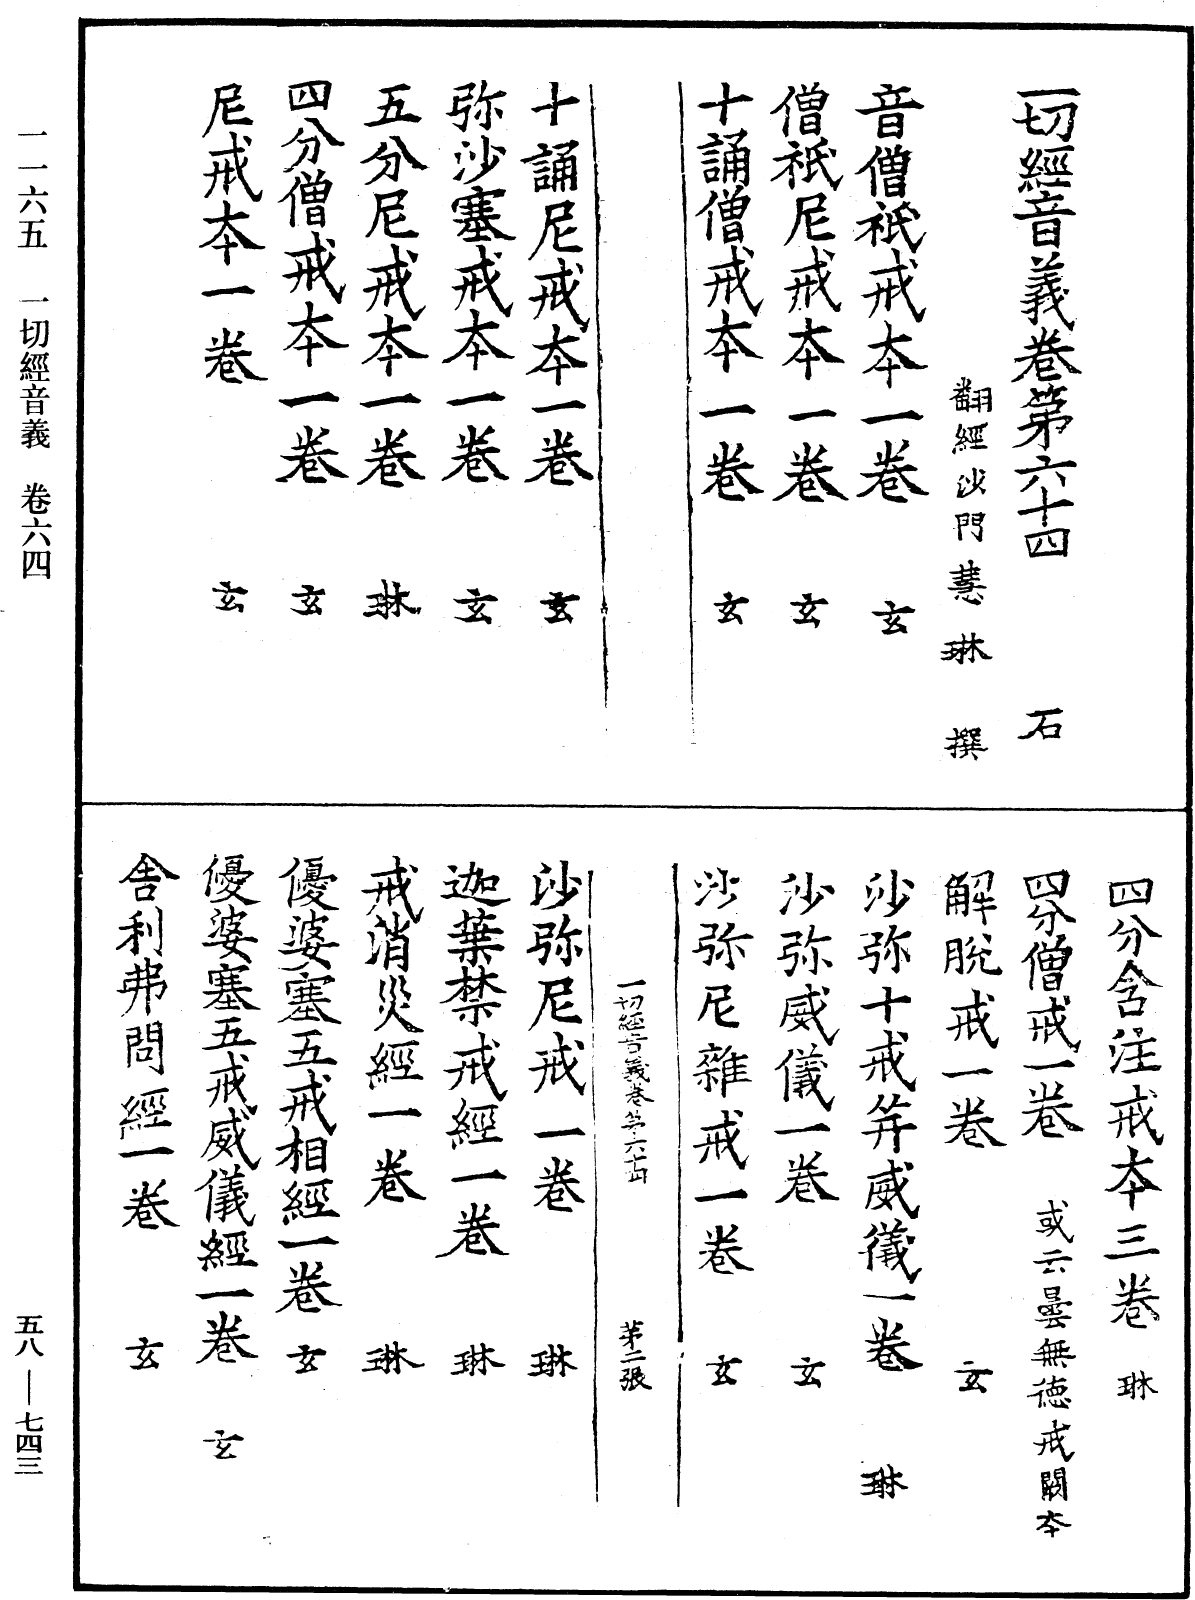 一切經音義卷第六十四　石
翻經沙門慧琳撰
音僧祇戒本一卷　玄
僧祇尼戒本一卷　玄
十誦僧戒本一卷　玄
十誦尼戒本一卷　玄
弥沙塞戒本一卷　玄
五分尼戒本一卷　琳
四分僧戒本一卷　玄
尼戒本一卷　玄
四分含注戒本三卷　琳
四分僧戒一卷　或云曇無德戒闕本
解脫戒一卷　玄
沙弥十戒并威儀一卷　琳
沙弥威儀一卷　玄
沙弥尼雜戒一卷　玄
一切經音義卷第六十四　第二張
沙弥尼戒一卷　琳
迦葉禁戒經一卷　琳
戒消災經一卷　琳
優婆塞五戒相經一卷　玄
優婆塞五戒威儀經一卷　玄
舍利弗問經一卷　玄
一一六五　一切經音義　卷六四
五八—七四三